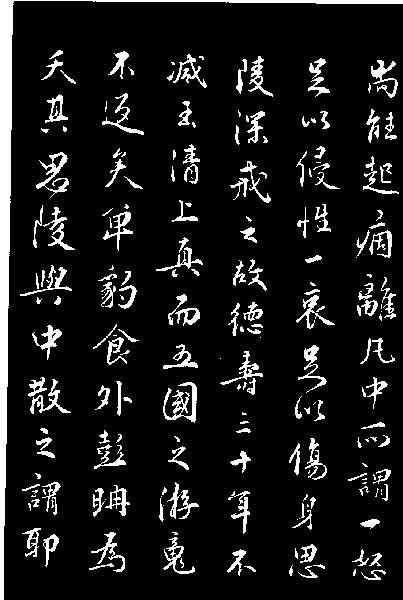 尚能起病離凡中所謂一怒
足以侵性一哀足以傷身思
陵深戒之故德壽三十年不
减玉清上真而五國之游竟
不返矣單豹食外彭聃為
夭其思陵與中散之謂耶